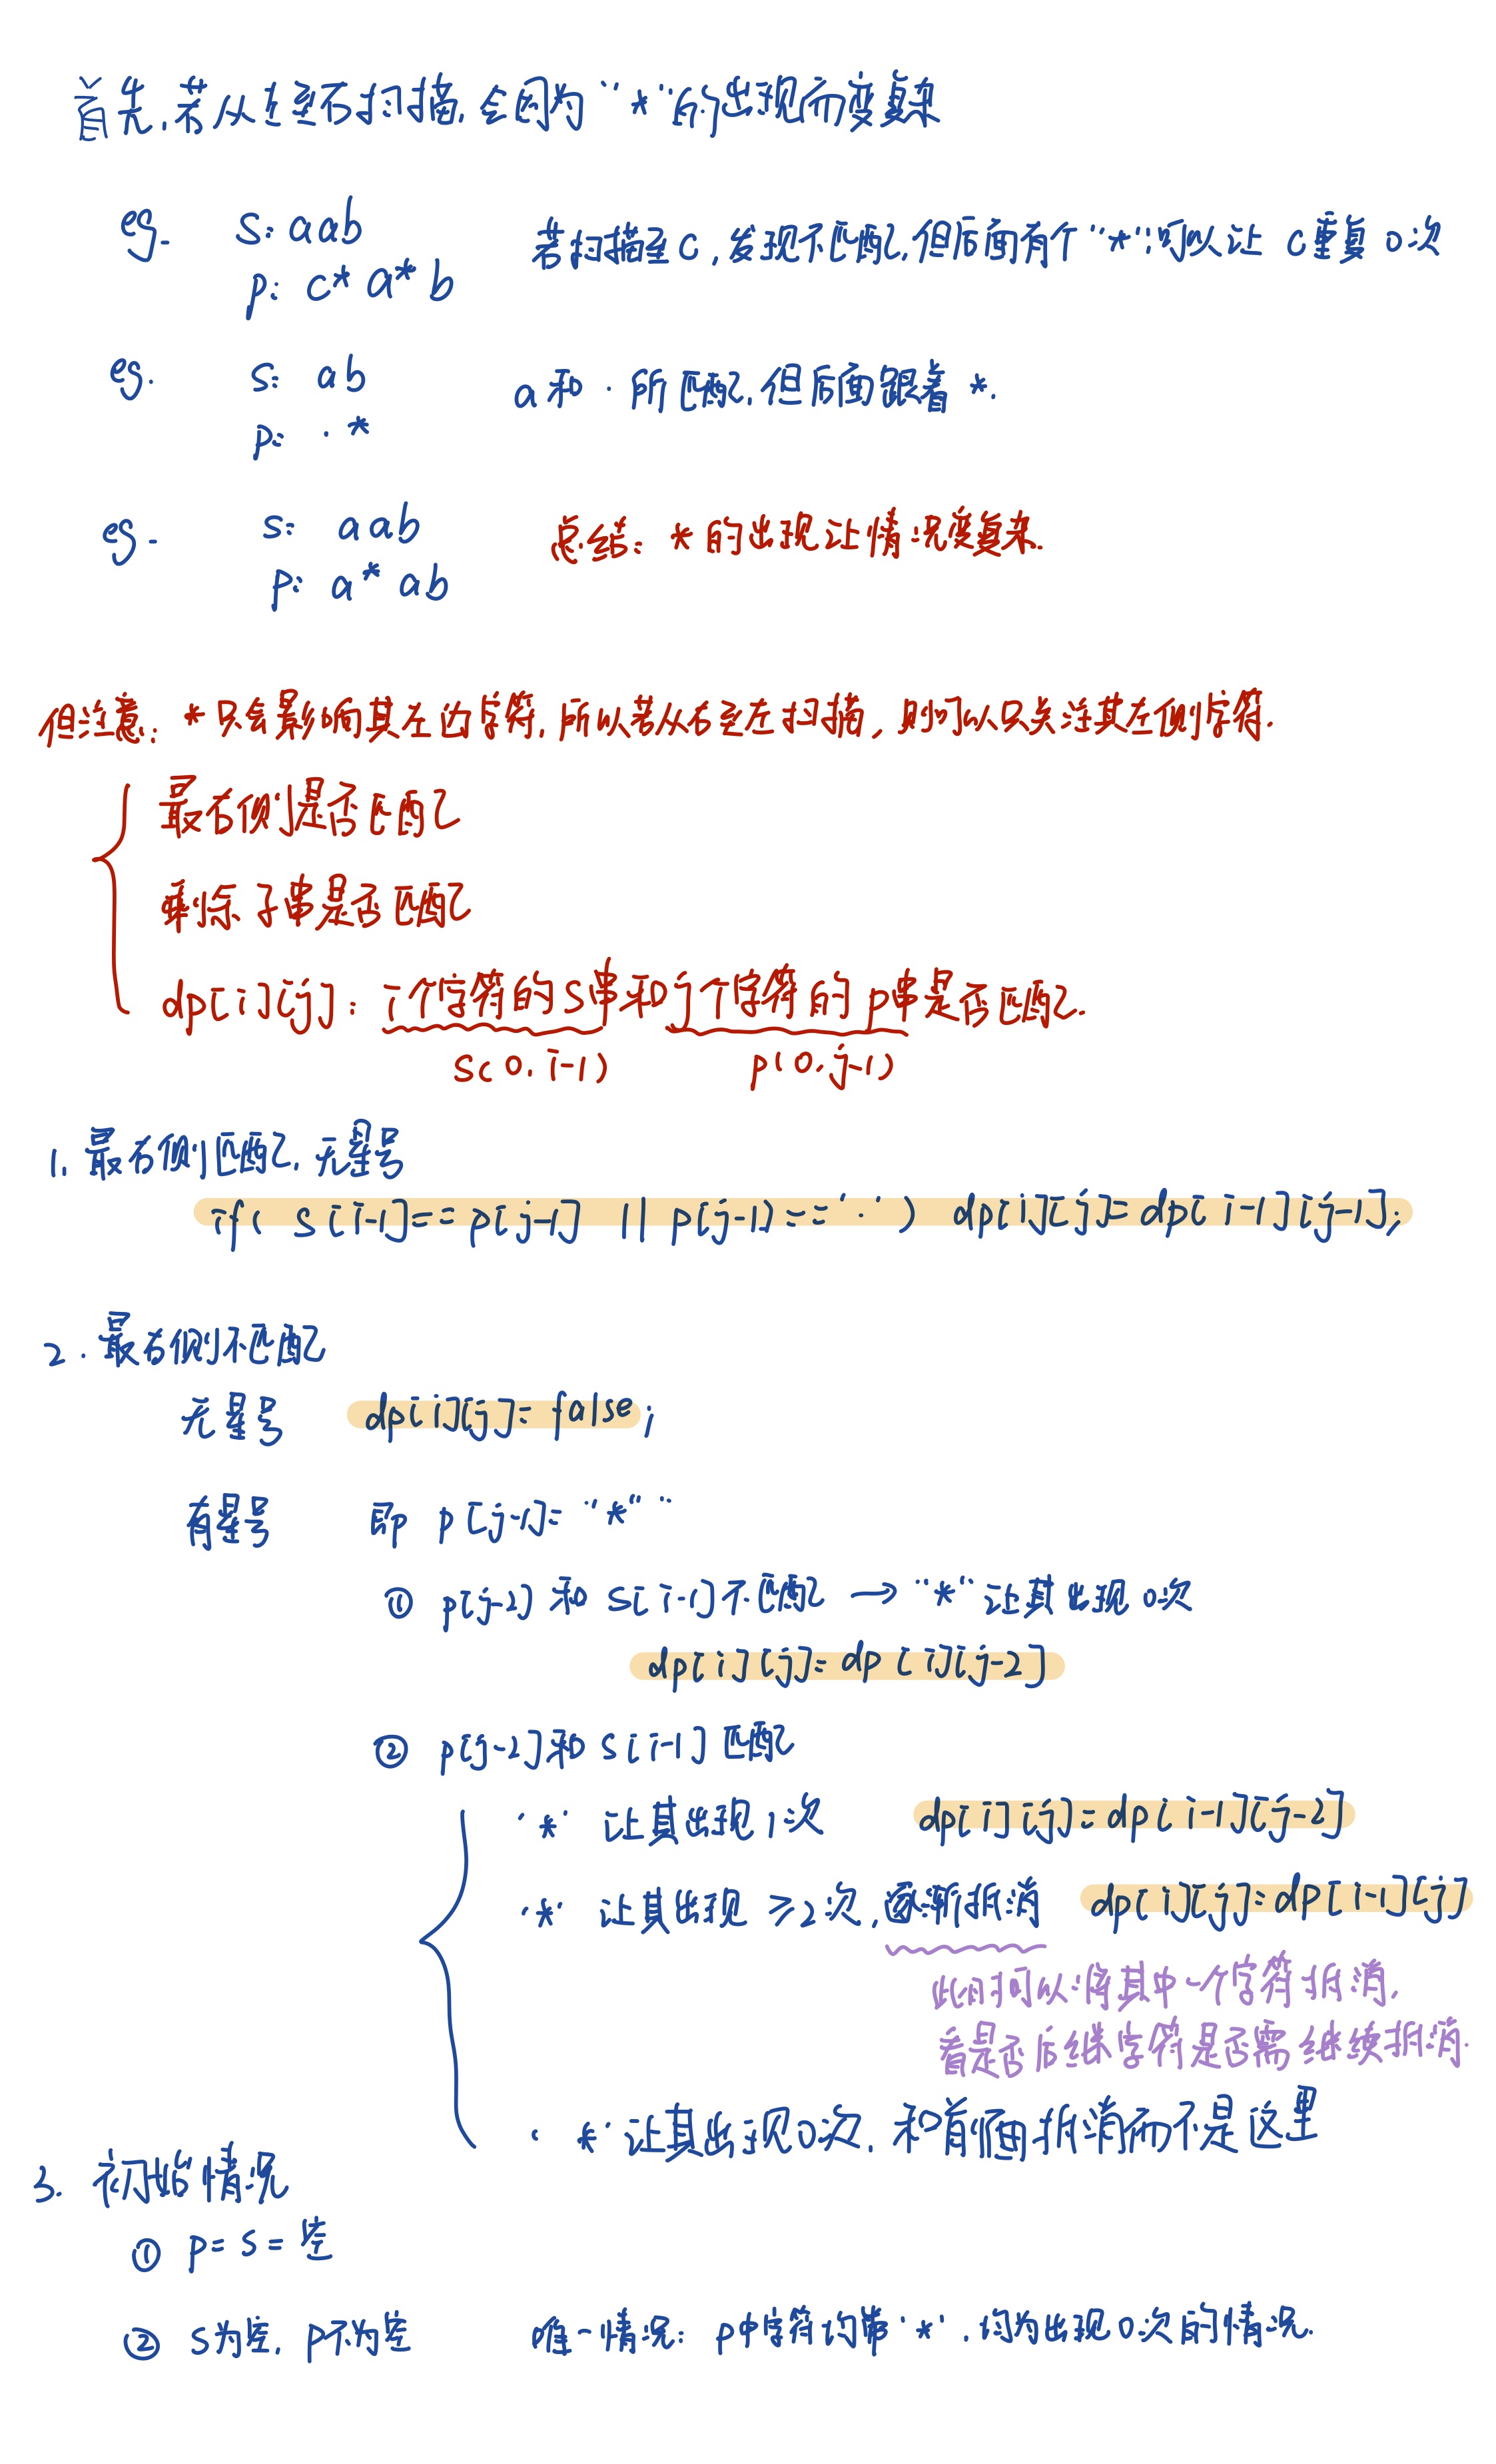 首先,若从左至右扫描,会因为"*"的出现而变复杂
eg. s: aab 若扫描至c,发现不匹配,但后面有个"*",可以让 c重复0次
p: c* a* b
eg. s: ab a和 . 所匹配,但后面跟着 *.
p: . *
eg. s: aab 总结: *的出现让情况变复杂.
p: a* ab
但注意: *只会影响其左边字符,所以若从右至左扫描,则可以只关注其左侧字符.
最右侧是否匹配
剩余子串是否匹配
dp[i][j]: i个字符的S串和j个字符的p串是否匹配.
s(0,i-1) p(0,j-1)
1. 最右侧匹配,无星号
if( s[i-1]==p[j-1] || p[j-1]=='.') dp[i][j]=dp[i-1][j-1];
2. 最右侧不匹配
无星号 dp[i][j]=false;
有星号 即 p[j-1]="*"
① p[j-2]和s[i-1]不匹配 → "*"让其出现0次
dp[i][j]=dp[i][j-2]
② p[j-2]和s[i-1]匹配
'*' 让其出现1次 dp[i][j]=dp[i-1][j-2]
'*' 让其出现 ≥2次,逐渐抵消 dp[i][j]=dp[i-1][j]
此时可以将其中一个字符抵消,
看是否后继字符是否需继续抵消.
'*'让其出现0次,和前面抵消而不是这里
3. 初始情况
① p=s=空
② s为空, p不为空 唯一情况: p中字符均带'*',均为出现0次的情况.